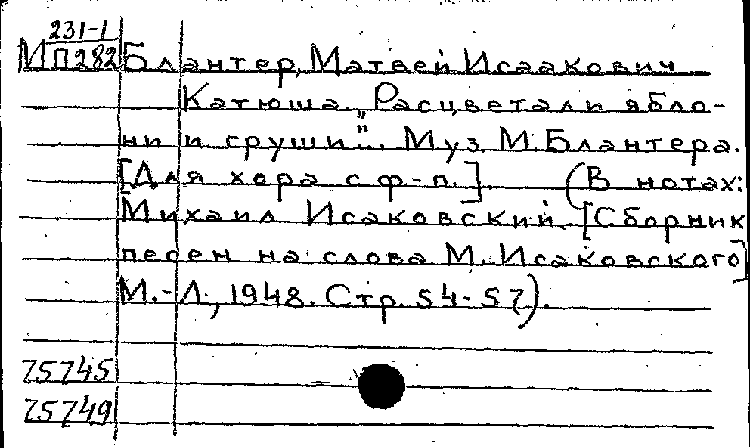 231-1
МП282 Блантер, Матвей Исаакович
Катюша. „Расцветали ябло-
ни и груши". Муз. М. Блантера.
[Для хора с ф-п.]. (В нотах:
Михаил Исаковский. [Сборник
песен на слова М. Исаковского]
М.-Л., 1948. Стр. 54-57).
75745
75749